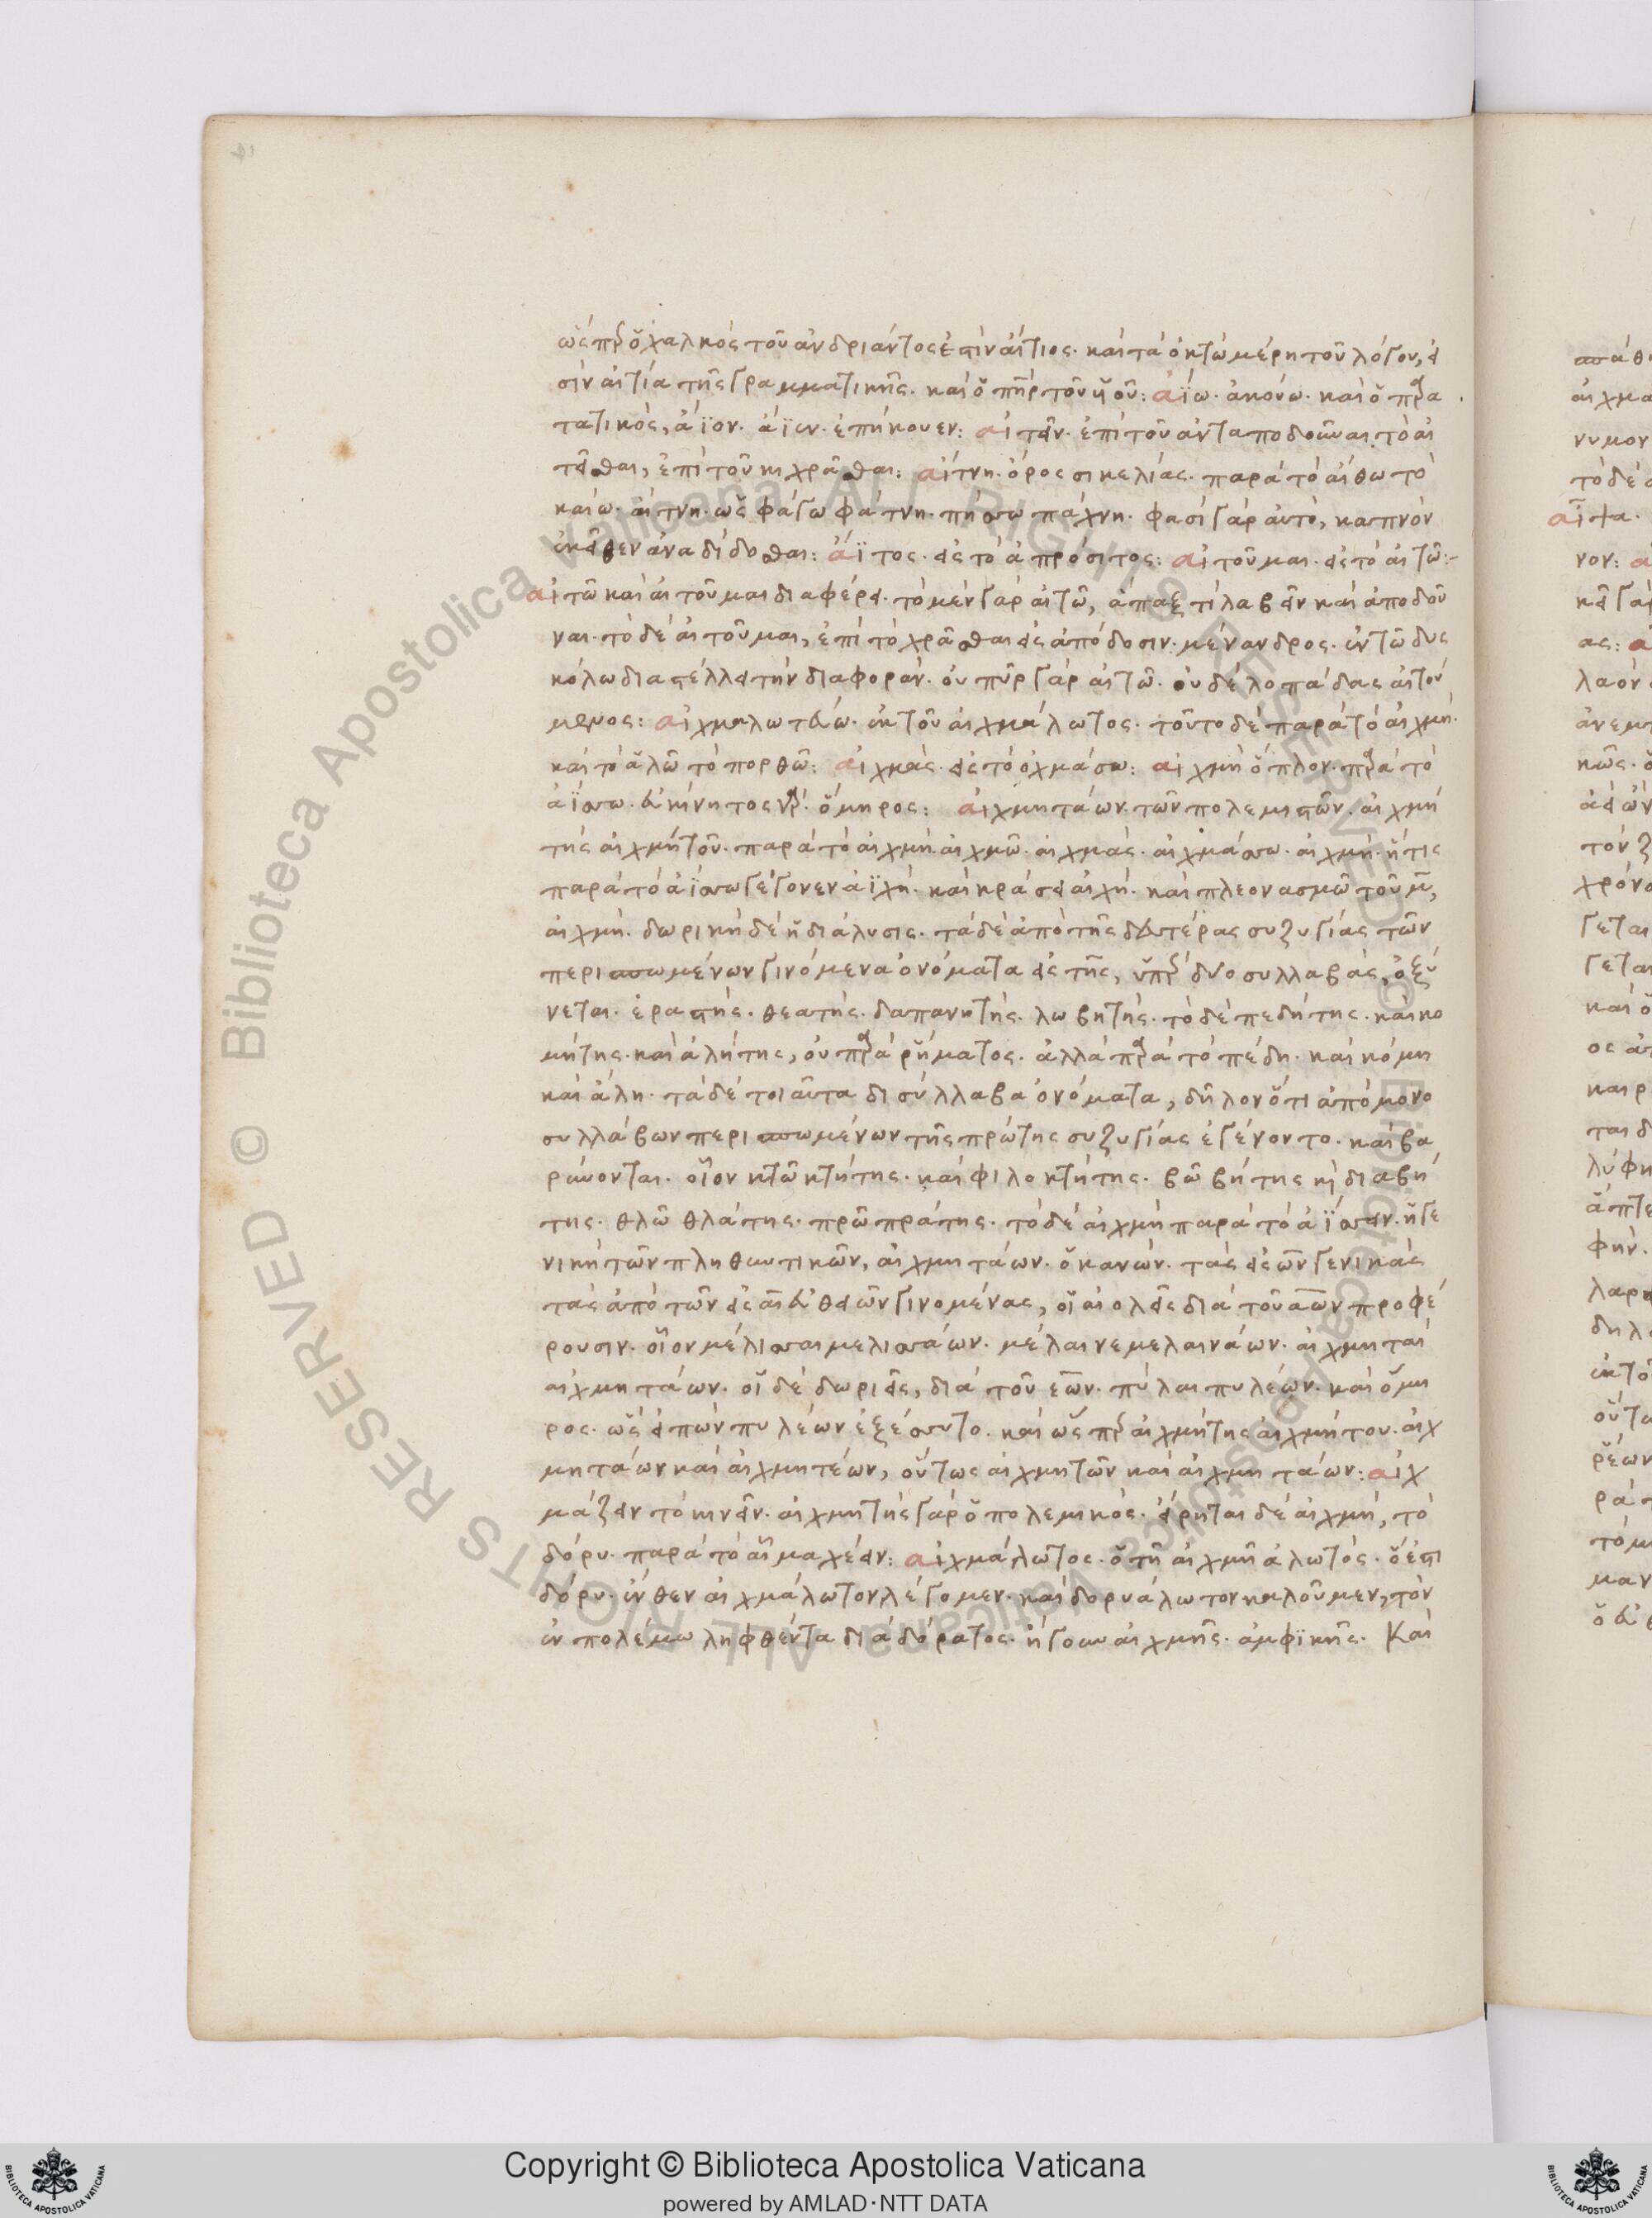 ὥσπερ ὁ χαλκὸς τοῦ ἀνδριάντος ἐστὶν αἴτιος· καὶ τὰ ὀκτὼ μέρη τοῦ λόγου, εἰ
σὶν αἰτία τῆς γραμματικῆς· καὶ ὁ πῆρ τοῦ υἱοῦ: ἀΐω· ἀκούω· καὶ ὁ παρα
τατικὸς, ἄϊον· ἄϊεν· ἐπήκουεν: αἰτεῖν· ἐπὶ τοῦ ἀνταποδοῦναι τὸ αἰ
τεῖσθαι, ἐπὶ τοῦ κιχρᾶσθαι: αἴτνη· ὄρος σικελίας· παρὰ τὸ αἴθω τὸ
καίω· αἴτνη· ὡς φάγω φάτνη· πήσσω πάχνη· φασὶ γὰρ αὐτὸ, καπνὸν
ἐκεῖθεν ἀναδίδοσθαι: ἄϊτος· εἰς τὸ ἀπρόσιτος: αἰτοῦμαι· εἰς τὸ αἰτῶ:-
αἰτῶ καὶ αἰτοῦμαι διαφέρει· τὸ μὲν γὰρ αἰτῶ, ἅπαξ τί λαβεῖν καὶ ἀποδοῦ
ναι· τὸ δὲ αἰτοῦμαι, ἐπὶ τὸ χρᾶσθαι εἰς ἀπόδοσιν· μένανδρος· ἐν τῶ δυς
κόλω διαστέλλει τὴν διαφορὰν· οὐ πῦρ γὰρ αἰτῶ· οὐδὲ λοπάδας αἰτού
μενος: αἰχμαλωτεύω· ἐκ τοῦ αἰχμάλωτος· τοῦτο δὲ παρὰ τὸ αἰχμὴ·
καὶ τὸ ἁλῶ τὸ πορθῶ: αἰχμὰς· εἰς τὸ ὀχμάσω: αἰχμὴ ὅπλον· παρὰ τὸ
ἀΐσσω· εὐκίνητος γὰρ· ὅμηρος: αἰχμητάων· τῶν πολεμιστῶν· αἰχμή
της αἰχμήτοῦ· παρὰ τὸ αἰχμὴ· αἰχμῶ· αἰχμὰς· αἰχμάσσω· αἰχμὴ· ἥτις
παρὰ τὸ ἀΐσσω γέγονεν ἀϊχὴ· καὶ κράσει αἰχὴ· καὶ πλεονασμῶ τοῦ μ,
αἰχμὴ· δωρικὴ δὲ ἡ διάλυσις· τὰ δὲ ἀπὸ τῆς δευτέρας συζυγίας τῶν
περισπωμένων γινόμενα ὀνόματα εἰς της, ὑπὲρ δύο συλλαβὰς, ὀξύ
νεται· ἐραστὴς· θεατὴς· δαπανητὴς· λωβητὴς· τὸ δὲ πεδήτης· καὶ κο
μήτης· καὶ ἀλήτης, οὐ παρὰ ῥήματος· ἀλλὰ παρὰ τὸ πέδη· καὶ κόμη
καὶ ἄλη· τὰ δὲ τοιαῦτα δισύλλαβα ὀνόματα, δῆλον ὅτι ἀπὸ μονο
συλλάβων περισπωμένων τῆς πρώτης συζυγίας ἐγένοντο· καὶ βα
ρύνονται· οἷον κτῶ κτήτης· καὶ φιλοκτήτης· βῶ βήτης κὶ διαβή
της· θλῶ θλάτης· πρῶ πράτης· τὸ δὲ αἰχμὴ παρὰ τὸ ἀΐσσειν· ἡ γε
νικὴ τῶν πληθυντικῶν, αἰχμητάων· ὁ κανών· τὰς εἰς ων γενικὰς
τὰς ἀπὸ τῶν εἰς αι εὐθειῶν γινομένας, οἱ αἰολεῖς διὰ τοῦ αων προφέ
ρουσιν· οἷον μέλισσαι μελισσάων· μέλαινε μελαινάων· αἰχμηταὶ
αἰχμητάων· οἱ δὲ δωριεῖς, διὰ τοῦ εων· πύλαι πυλέων· καὶ ὅμη
ρος· ὡς εἰπὼν πυλέων ἐξέσσυτο· καὶ ὥσπερ αἰχμήτης αἰχμήτου· αἰχ
μητάων καὶ αἰχμητέων, οὕτως αἰχμητῶν καὶ αἰχμητάων: αἰχ
μάζειν τὸ κινεῖν· αἰχμητὴς γὰρ ὁ πολεμικὸς· εἴρηται δὲ αἰχμὴ, τὸ
δόρυ· παρὰ τὸ αἷμα χέειν: αἰχμάλωτος· ὁ τῆ αἰχμῆ ἁλωτὸς· ὅ ἐστι
δόρυ· ἔνθεν αἰχμάλωτον λέγομεν· καὶ δορυάλωτον καλοῦμεν, τὸν
ἐν πολέμω ληφθέντα διὰ δόρατος· ἤγουν αἰχμῆς· ἀμφϊκῆς· Καὶ
Copyright © Biblioteca Apostolica Vaticana
powered by AMLAD·NTT DATA